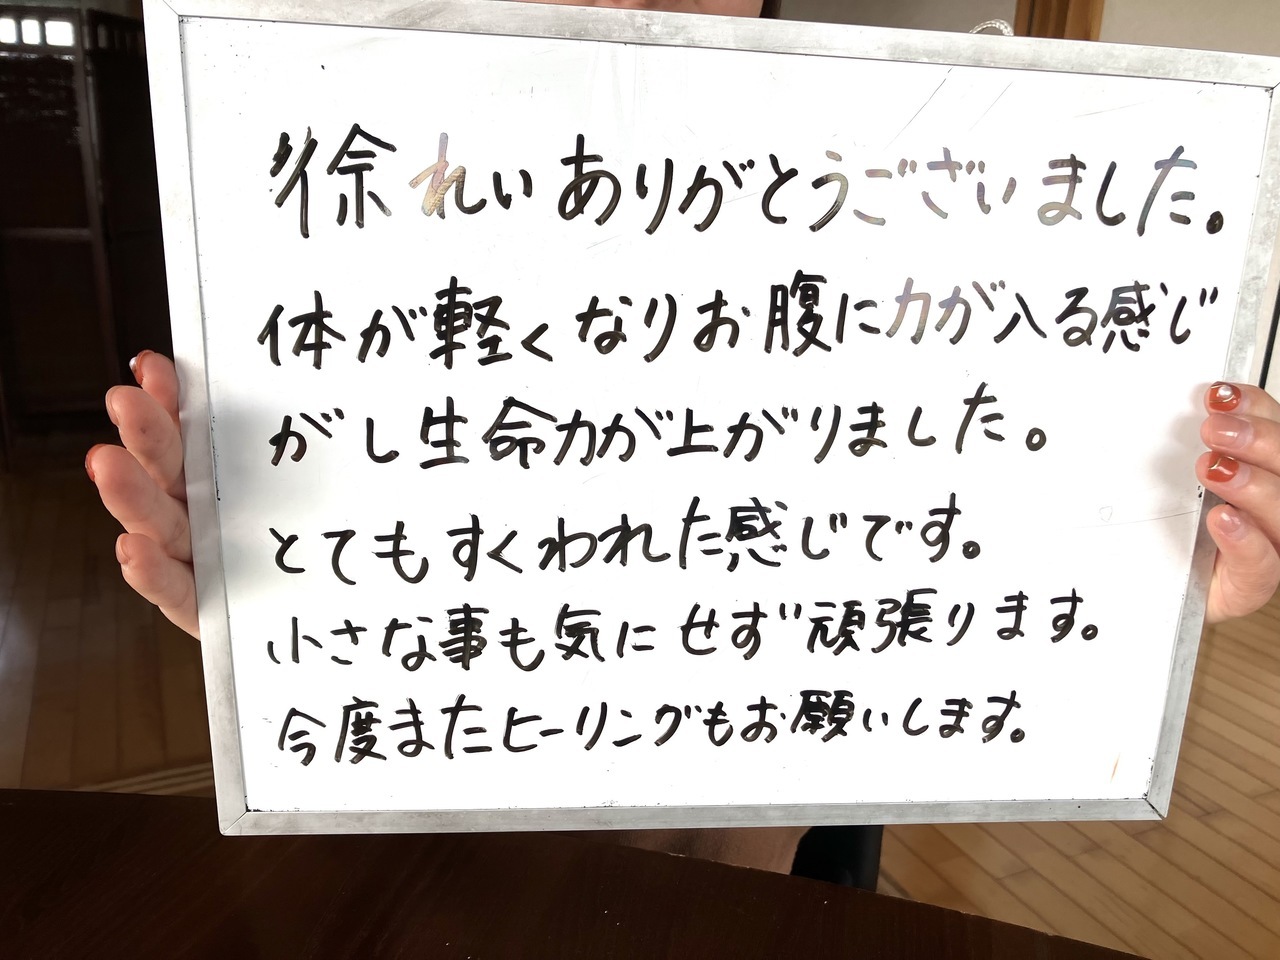 徐れいありがとうございました。
体が軽くなりお腹に力が入る感じ
がし生命力が上がりました。
とてもすくわれた感じです。
小さな事も気にせず頑張ります。
今度またヒーリングもお願いします。